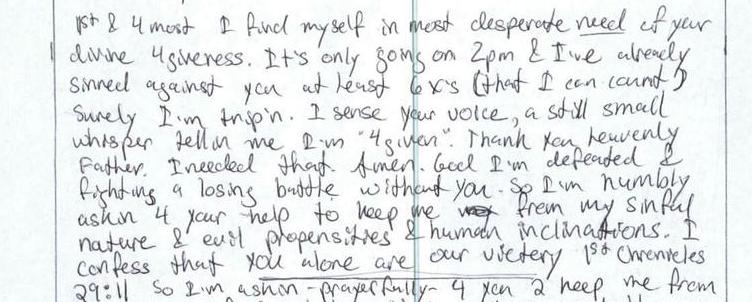 1st & 4 most I find myself in most desperate need of your
divine 4giveness. It's only going on 2pm & I've already
sinned against you at least 6 x's (that I can count)
Surely I'm trip'n. I sense your voice, a still small
whisper tellin me I'm "4given". Thank you heavenly
Father. I needed that. Amen. God I'm defeated &
fighting a losing battle without you. So I'm humbly
askin 4 your help to keep me from my sinful
nature & evil propensities & human inclinations. I
confess that you alone are our victory 1st Chronicles
29:11 So I'm askin - prayerfully - 4 you 2 keep me from